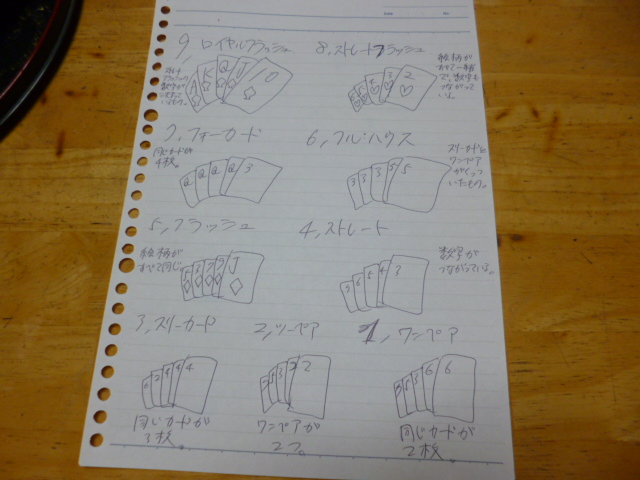 9, ロイヤルフラッシュ
A K Q J 10
8, ストレートフラッシュ
6 5 4 3 2
絵柄が
すべて一緒
で、数字も
つながって
いる。
7, フォーカード
同じカードが
4枚。
Q Q Q Q 3
6, フルハウス
3 3 3 5 5
スリーカードと
ワンペア
がくっつ
いたもの。
5, フラッシュ
絵柄が
すべて同じ。
J
4, ストレート
7 6 5 4 3
数字が
つながっている。
3, スリーカード
4 4 4
同じカードが
3枚。
2, ツーペア
2 2
ワンペアが
2つ。
1, ワンペア
2 5 3 6 6
同じカードが
2枚。